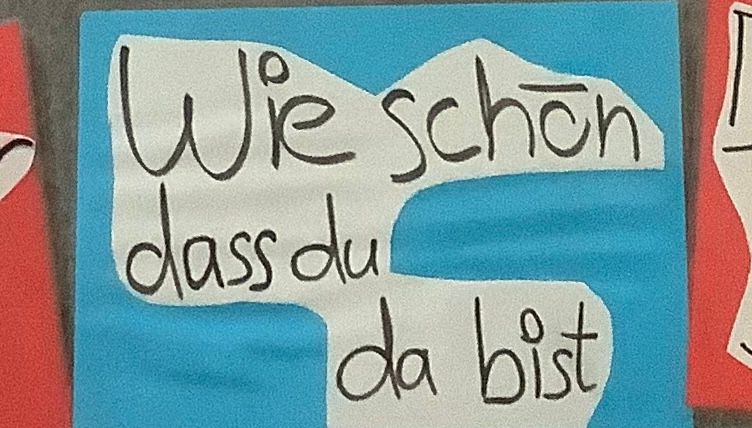 Wie schön
dass du
da bist